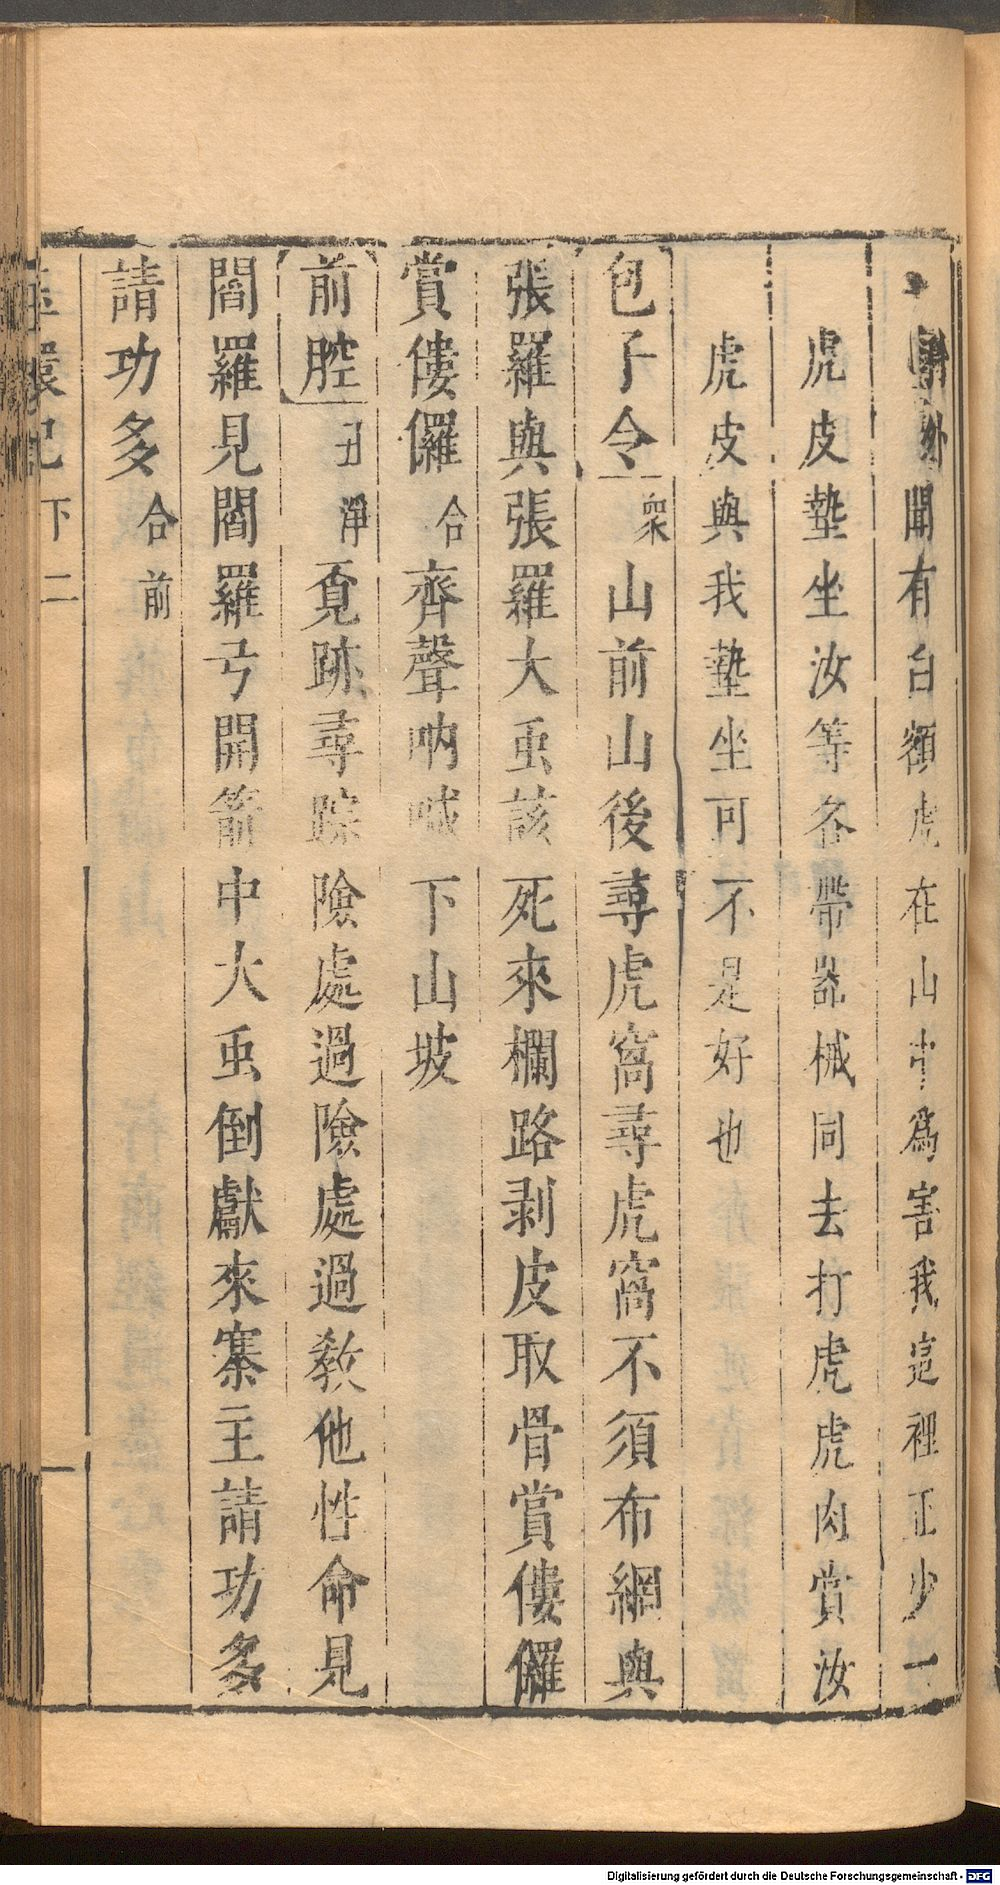 外聞有白額虎在山中爲害我這裡正少一
虎皮墊坐汝等各帶器械同去打虎虎肉賞汝
虎皮與我墊坐可不是好也
包子令衆山前山後尋虎窩尋虎窩不須布網與
張羅與張羅大虫該死來欄路剥皮取骨賞僂儸
賞僂儸合齊聲吶喊下山坡
前腔丑淨覓跡尋踪險處過險處過教他性命見
閻羅見閻羅弓開箭中大虫倒獻來寨主請功多
請功多合前
環記 下 二
Digitalisierung gefördert durch die Deutsche Forschungsgemeinschaft - DFG